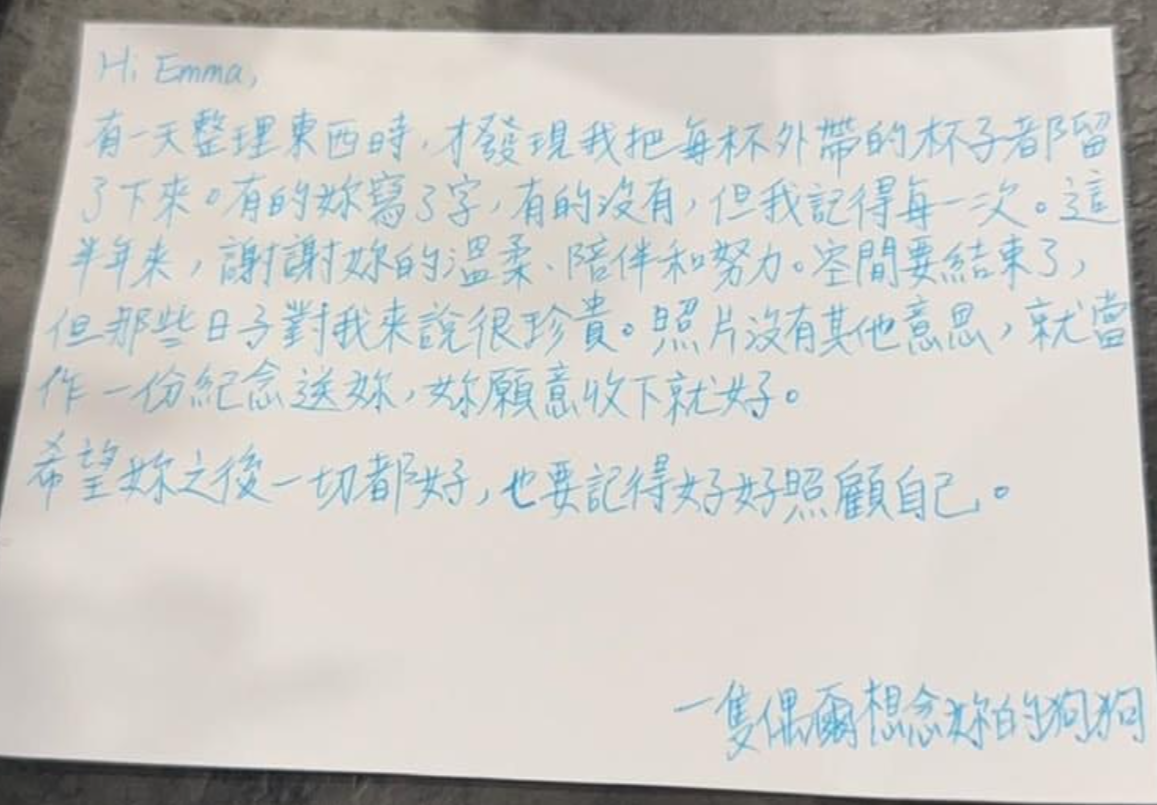 Hi Emma,
有一天整理東西時,才發現我把每杯外帶的杯子都留
了下來。有的妳寫了字,有的沒有,但我記得每一次。這
半年来,謝謝妳的溫柔、陪伴和努力。空間要結束了,
但那些日子對我來說很珍貴。照片沒有其他意思,就當
作一份紀念送妳,妳願意收下就好。
希望妳之後一切都好,也要記得好好照顧自己。
一隻偶爾想念妳的狗狗